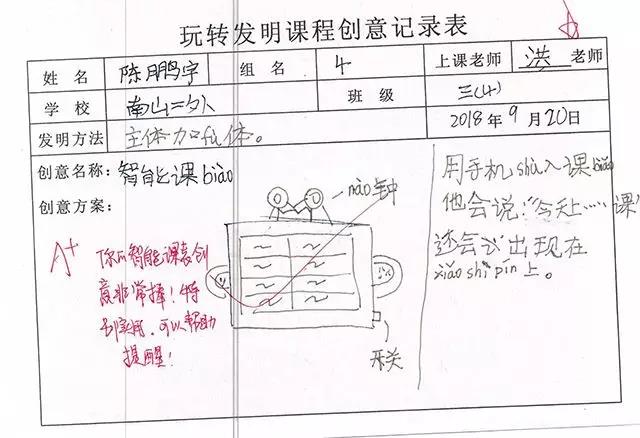 玩转发明课程创意记录表
姓 名 陈鹏宇 组 名 4 上课老师 洪 老师
学 校 南山二外 班 级 三(4)
发明方法 主体加 体。 2018 年 9 月 20 日
创意名称: 智能课biǎo
创意方案:
nào钟
开关
用手机shū入课biǎo
他会说:“今天上……课”
还会 出现在
xiǎo shì pín上。
A+
你的智能课表创
意非常棒!特
别实用,可以帮助
提醒!